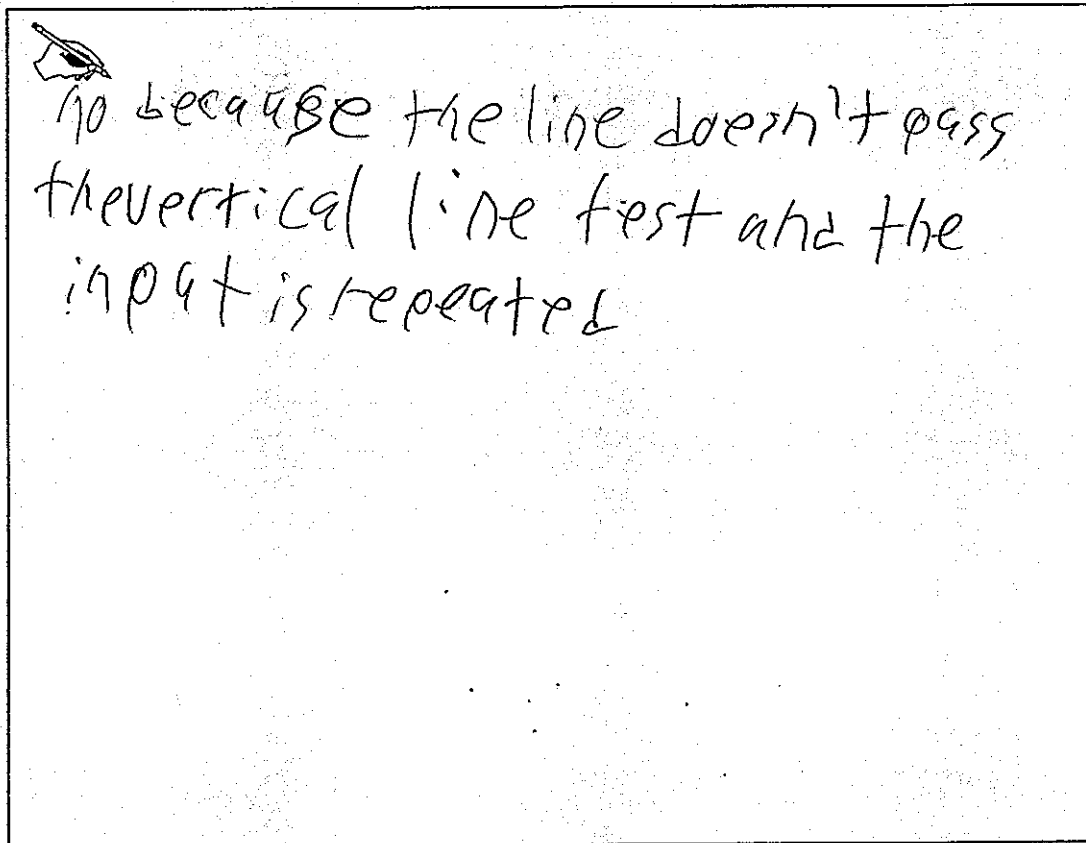 no because the line doesn't pass
the vertical line test and the
input is repeated